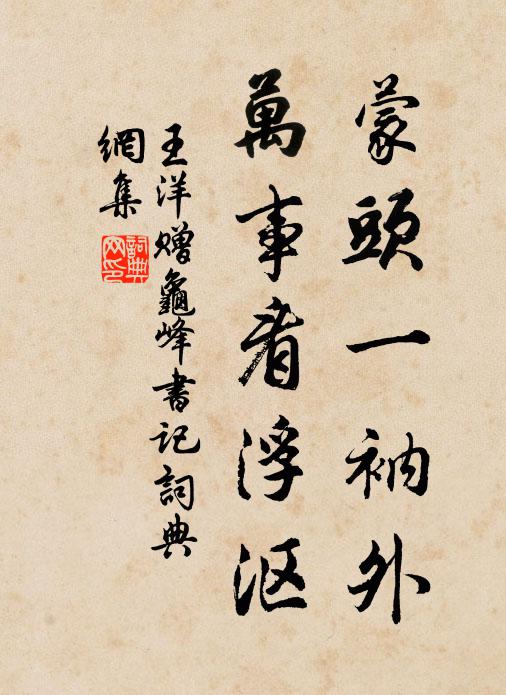 蒙頭一衲外
萬事看浮沤
王洋贈龜峰書記詞典
網集
詞典网印